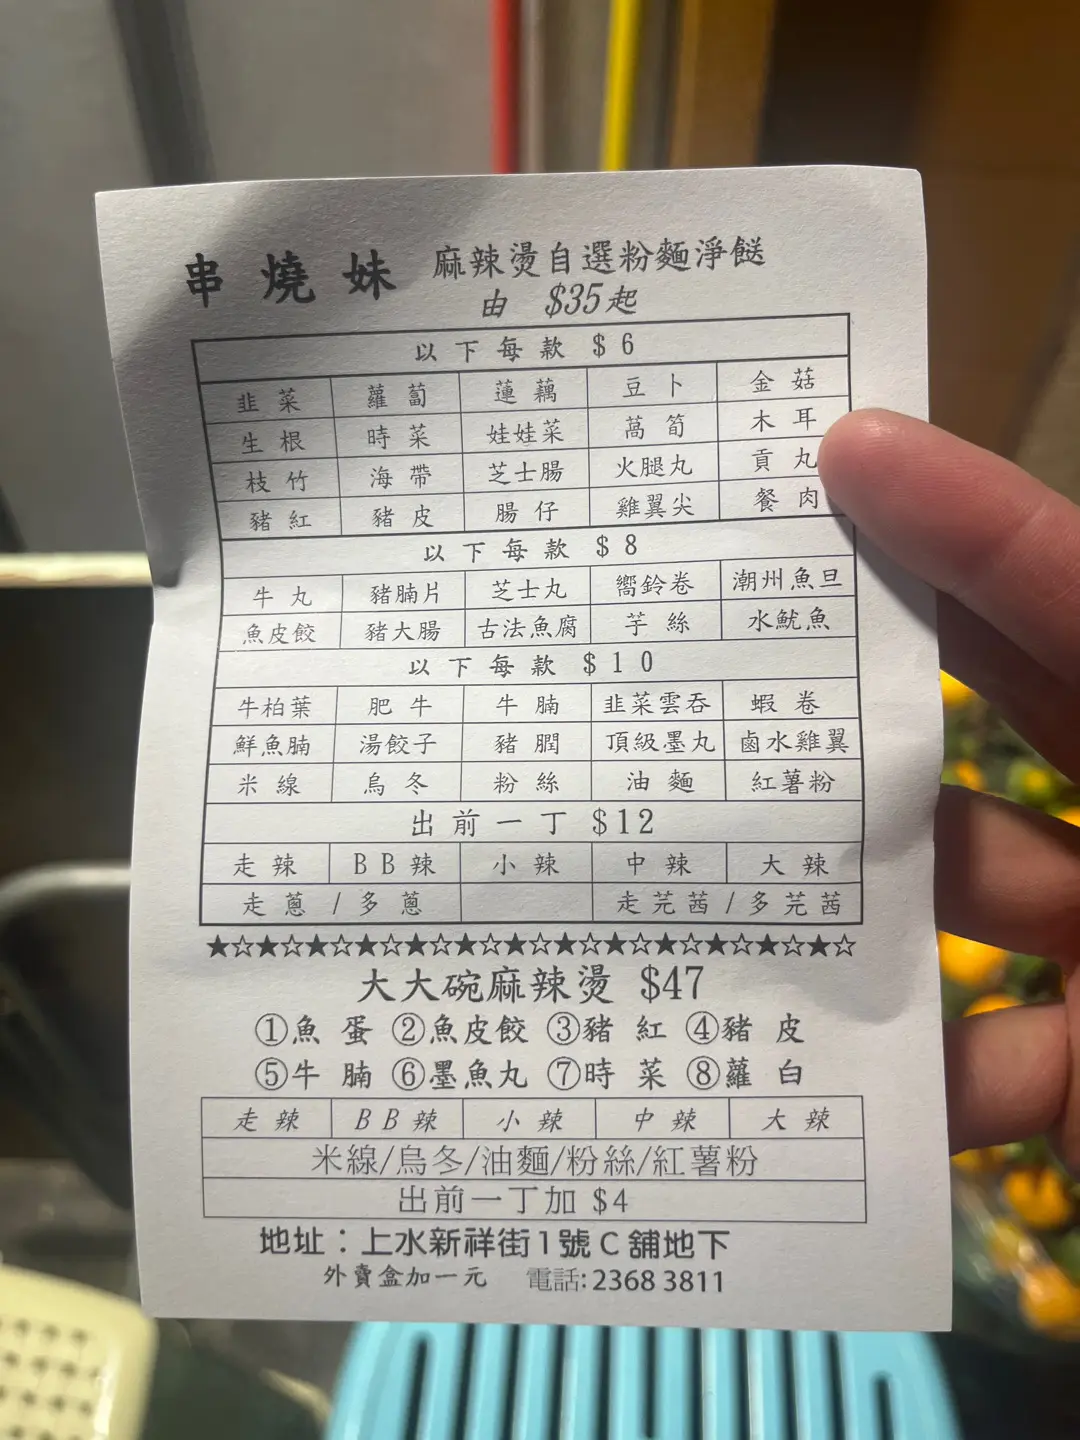 串燒妹 麻辣燙自選粉麵淨餸
由 $35起
以下每款 $6
韭菜 蘿蔔 蓮藕 豆卜 金菇
生根 時菜 娃娃菜 萵筍 木耳
枝竹 海帶 芝士腸 火腿丸 貢丸
豬紅 豬皮 腸仔 雞翼尖 餐肉
以下每款 $8
牛丸 豬腩片 芝士丸 嚮鈴卷 潮州魚旦
魚皮餃 豬大腸 古法魚腐 芋絲 水魷魚
以下每款 $10
牛柏葉 肥牛 牛腩 韭菜雲吞 蝦卷
鮮魚腩 湯餃子 豬膶 頂級墨丸 鹵水雞翼
米線 烏冬 粉絲 油麵 紅薯粉
出前一丁 $12
走辣 BB辣 小辣 中辣 大辣
走蔥/多蔥 走芫茜/多芫茜
★☆★☆★☆★☆★☆★☆★☆★☆★☆★☆★☆★☆★☆
大大碗麻辣燙 $47
①魚蛋 ②魚皮餃 ③豬紅 ④豬皮
⑤牛腩 ⑥墨魚丸 ⑦時菜 ⑧蘿白
走辣 BB辣 小辣 中辣 大辣
米線/烏冬/油麵/粉絲/紅薯粉
出前一丁加 $4
地址：上水新祥街1號C舖地下
外賣盒加一元 電話:2368 3811